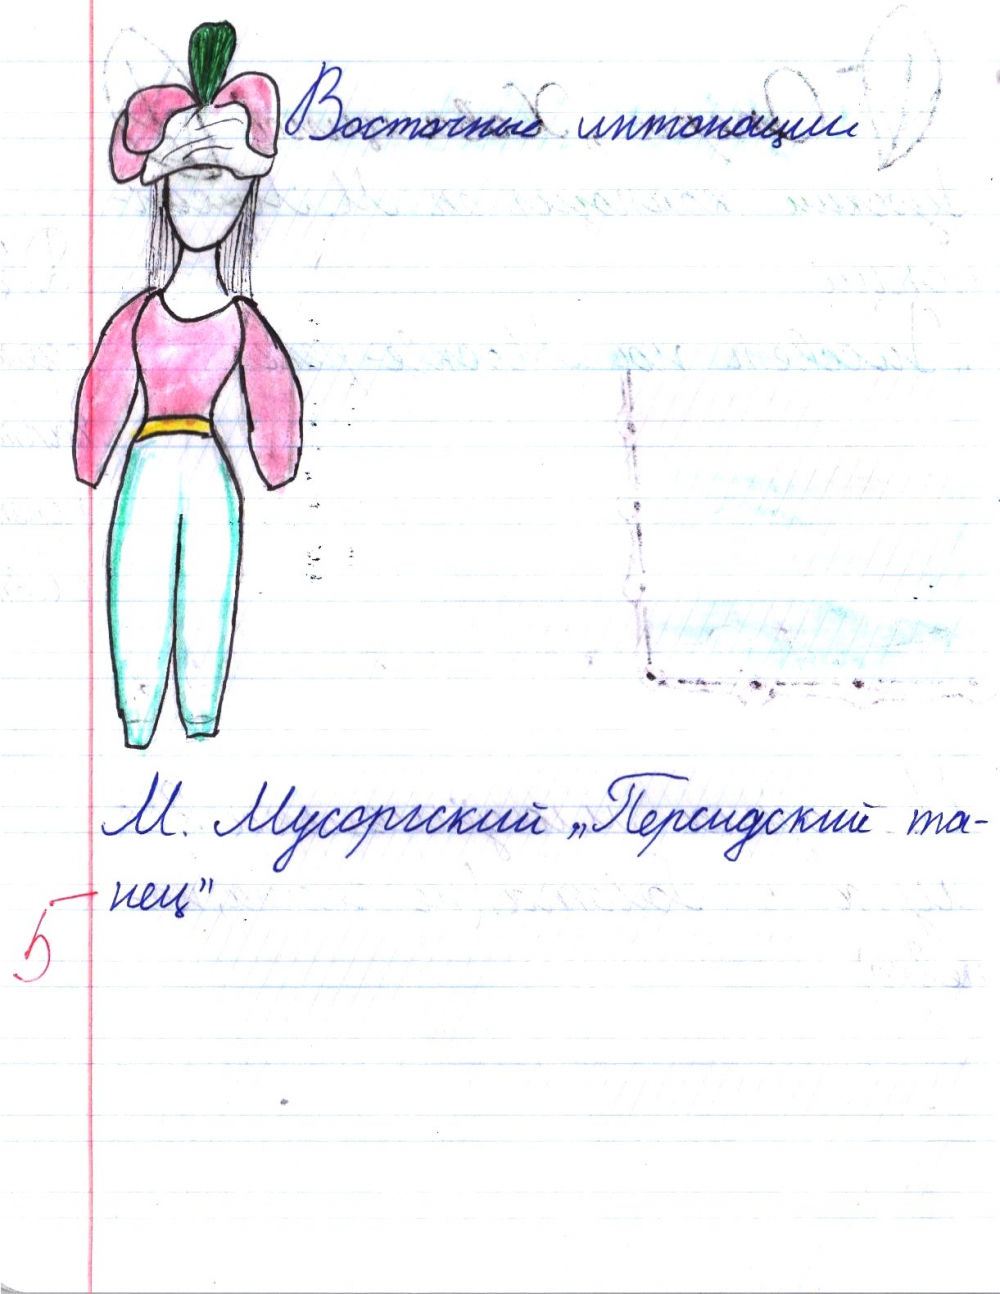 Восточные интонации
М. Мусоргский „Персидский та-
нец"
5